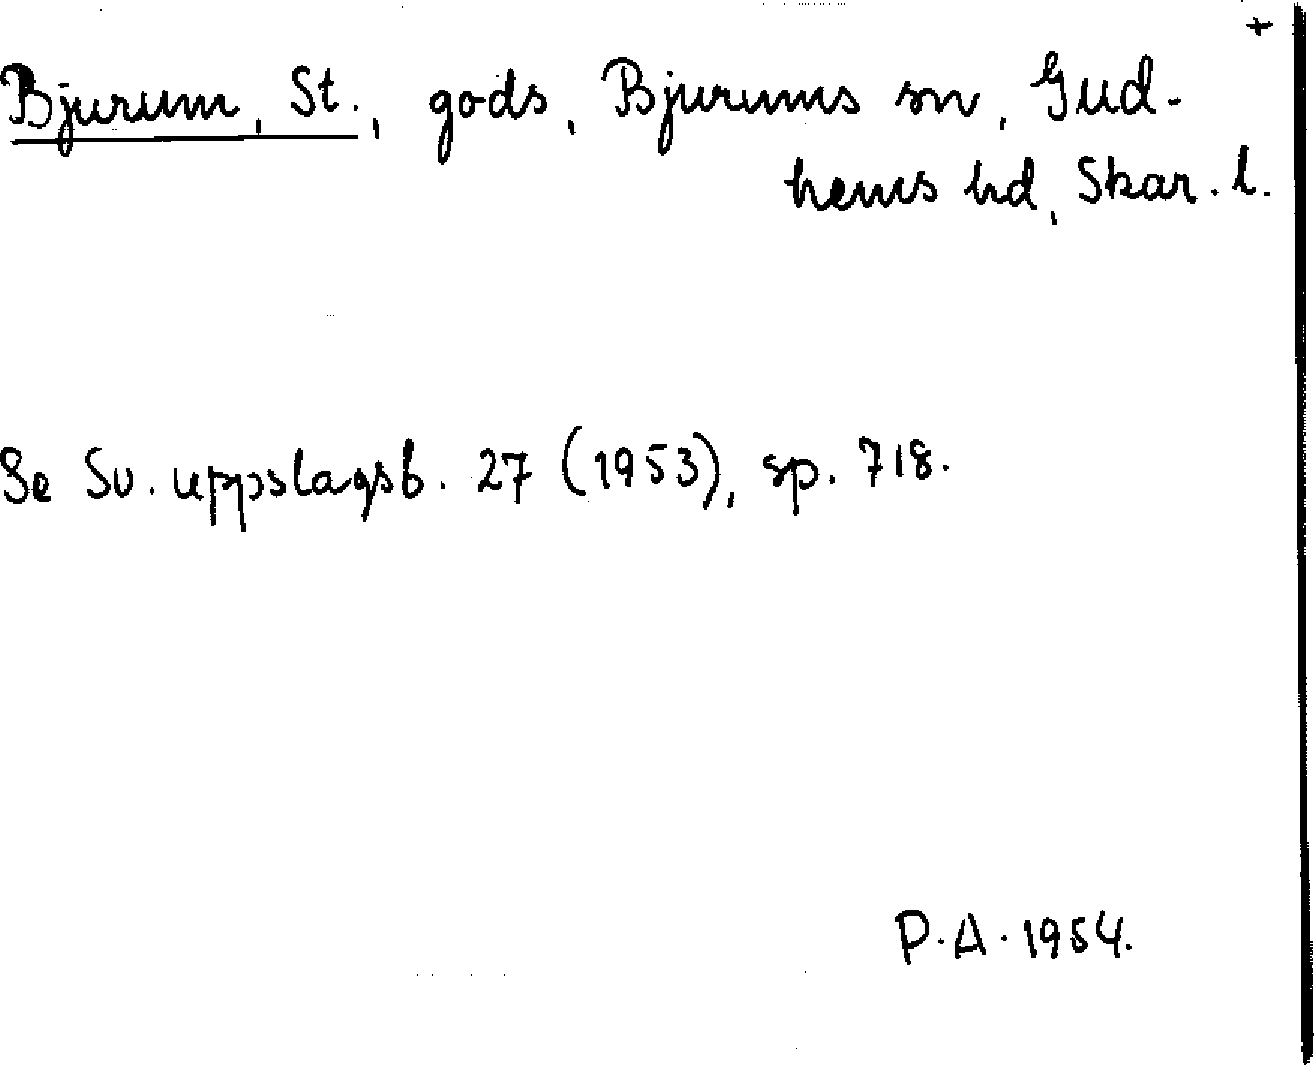 +
Bjurum, St., gods, Bjurums sn, Gud-
hems hd, Skar. l.
Se Sv. uppslagsb. 27 (1953), sp. 718.
P.A. 1954.